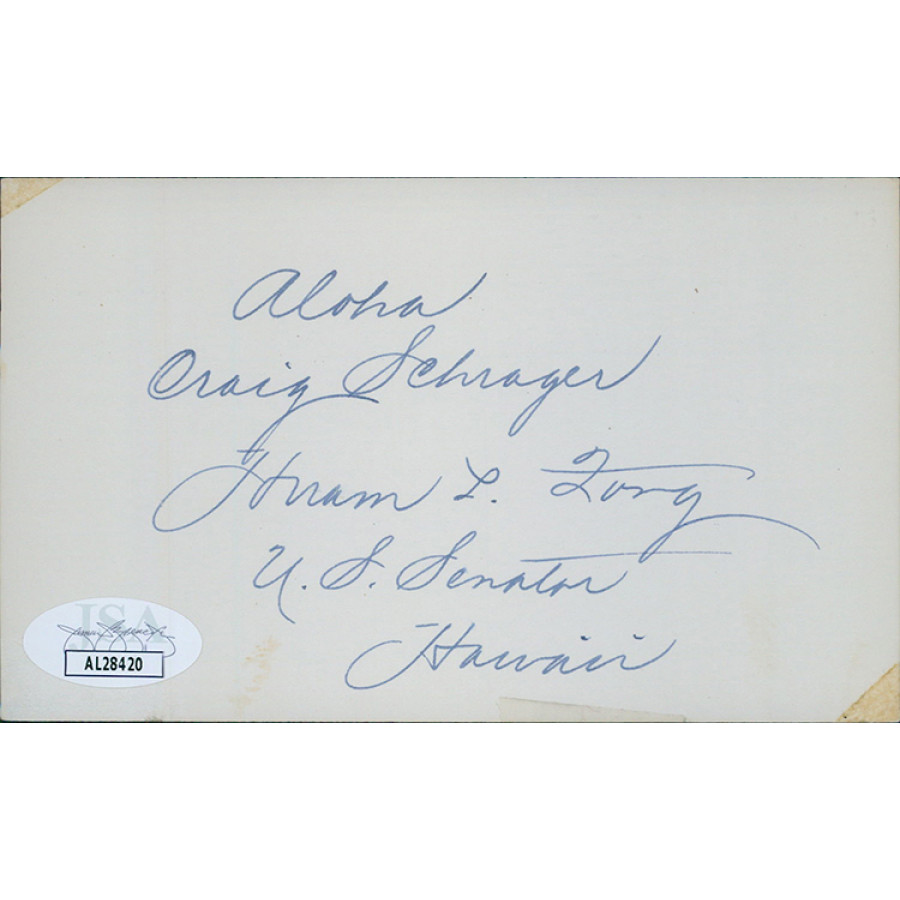 Aloha
Craig Schrager
Hiram L. Fong
U. S. Senator
Hawaii
JSA
AL28420